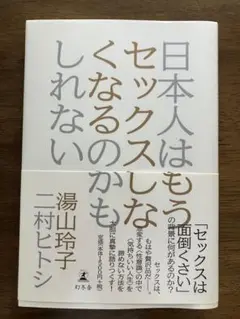 日本人はもう
セックスしな
くなるのかも
しれない
湯山玲子
二村ヒトシ
「セックスは
面倒くさい」
の背景に何があるのか?
セックスは、
もはや贅沢品だ――。
諦めない方法を
真摯に語りつくす!
幻冬舎